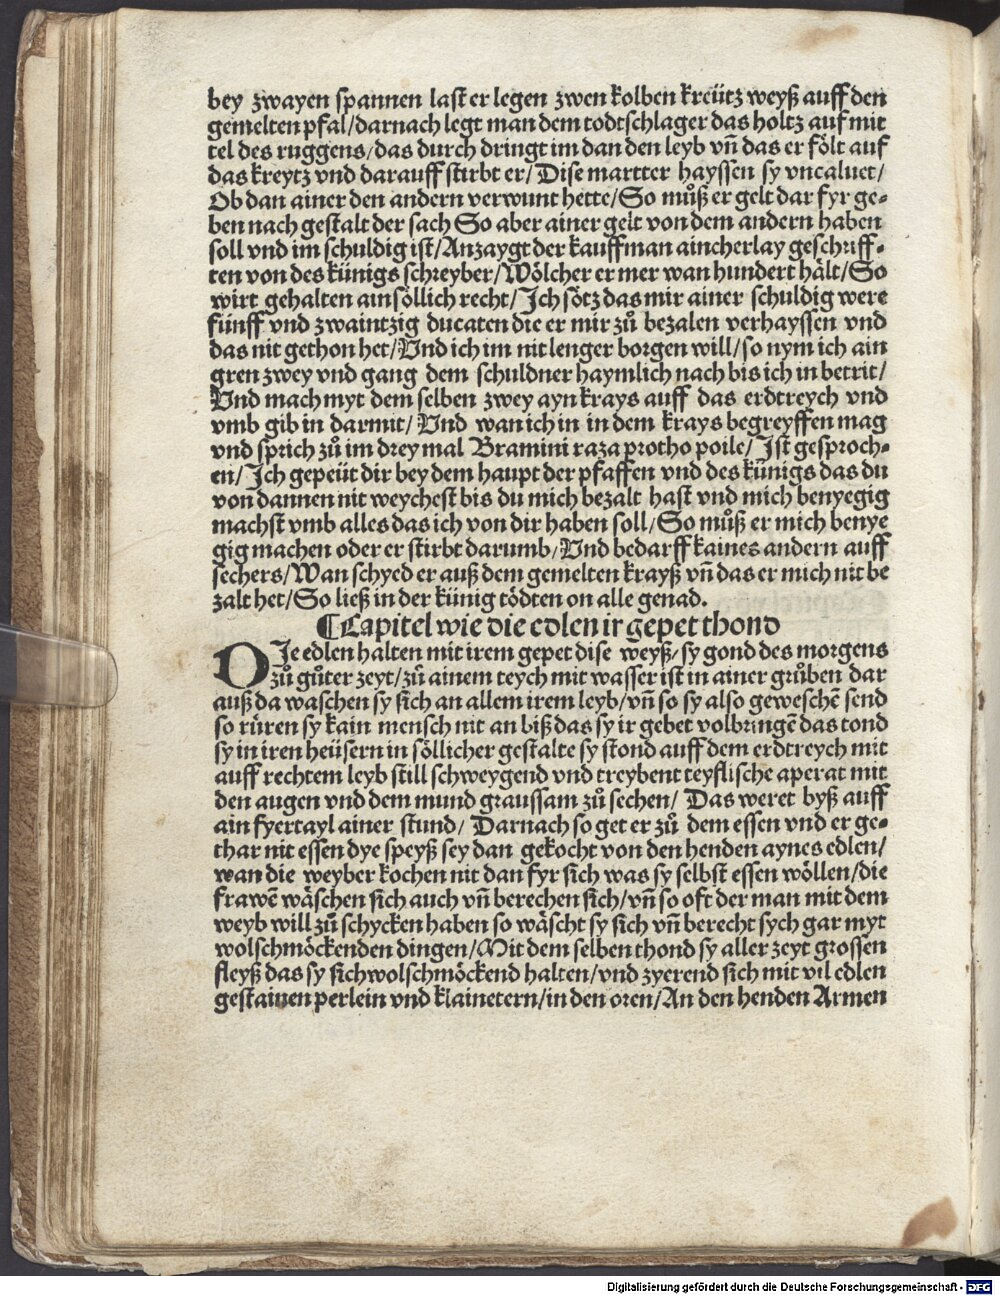 bey zwayen spannen last er legen zwen kolben kreütz weyß auff den
gemelten pfal/darnach legt man dem todtschlager das holtz auf mit
tel des ruggens/das durch dringt im dan den leyb vñ das er fölt auf
das kreytz vnd darauff stirbt er/Dise martter hayssen sy vncaluet/
Ob dan ainer den andern verwunt hette/So můß er gelt dar fyr ge⸗
ben nach gestalt der sach So aber ainer gelt von dem andern haben
soll vnd im schuldig ist/Anzaygt der kauffman aincherlay geschriff⸗
ten von des künigs schreyber/Wölcher er mer wan hundert hält/So
wirt gehalten ain söllich recht/Ich sötz das mir ainer schuldig were
fünff vnd zwaintzig ducaten die er mir zů bezalen verhayssen vnd
das nit gethon het/Vnd ich im nit lenger borgen will/so nym ich ain
gren zwey vnd gang dem schuldner haymlich nach bis ich in betrit/
Vnd mach myt dem selben zwey ayn krays auff das erdtreych vnd
vmb gib in darmit/Vnd wan ich in in dem krays begreyffen mag
vnd sprich zů im drey mal Bramini raza protho poile/Ist gesproch⸗
en/Ich gepeüt dir bey dem haupt der pfaffen vnd des künigs das du
von dannen nit weychest bis du mich bezalt hast vnd mich benyegig
machst vmb alles das ich von dir haben soll/So můß er mich benye
gig machen oder er stirbt darumb/Vnd bedarff kaines andern auff
sechers/Wan schyed er auß dem gemelten krayß vñ das er mich nit be
zalt het/So ließ in der künig tödten on alle genad.
¶Capitel wie die edlen ir gepet thond
DIe edlen halten mit irem gepet dise weyß/sy gond des morgens
zů gůter zeyt/zů ainem teych mit wasser ist in ainer grůben dar
auß da waschen sy sich an allem irem leyb/vñ so sy also geweschē send
so rüren sy kain mensch nit an biß das sy ir gebet volbringē das tond
sy in iren heüsern in söllicher gestalte sy stond auff dem erdtreych mit
auff rechtem leyb still schweygend vnd treybent teyflische aperat mit
den augen vnd dem mund graussam zů sechen/ Das weret byß auff
ain fyertayl ainer stund/ Darnach so get er zů dem essen vnd er ge⸗
thar nit essen dye speyß sey dan gekocht von den henden aynes edlen/
wan die weyber kochen nit dan fyr sich was sy selbst essen wöllen/die
frawē wäschen sich auch vñ berechen sich/vñ so oft der man mit dem
weyb will zů schycken haben so wäscht sy sich vñ berecht sych gar myt
wolschmöckenden dingen/Mit dem selben thond sy aller zeyt grossen
fleyß das sy sich wolschmöckend halten/vnd zyerend sich mit vil edlen
gestainen perlein vnd klainetern/in den oren/An den henden Armen
Digitalisierung gefördert durch die Deutsche Forschungsgemeinschaft - DFG